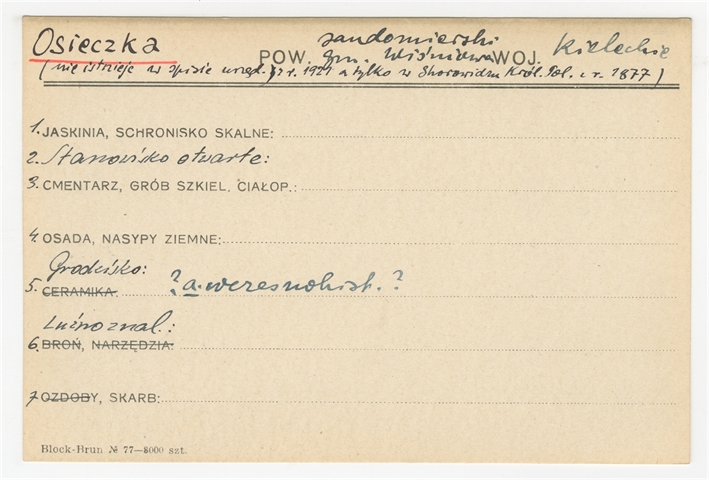 Osieczka POW. sandomierski gm. Wiśniowa WOJ. Kieleckie
(nie istnieje w spisie urzęd. z r. 1921 a tylko w Skorowidzu Król. Pol. z r. 1877)
1. JASKINIA, SCHRONISKO SKALNE:
2. Stanowisko otwarte:
3. CMENTARZ, GRÓB SZKIEL. CIAŁOP.:
4. OSADA, NASYPY ZIEMNE:
Grodzisko:
5. CERAMIKA. ? a. wczesnohist. ?
Luźno znal.:
6. BROŃ, NARZĘDZIA:
7 OZDOBY, SKARB:
Block-Brun № 77—8000 szt.